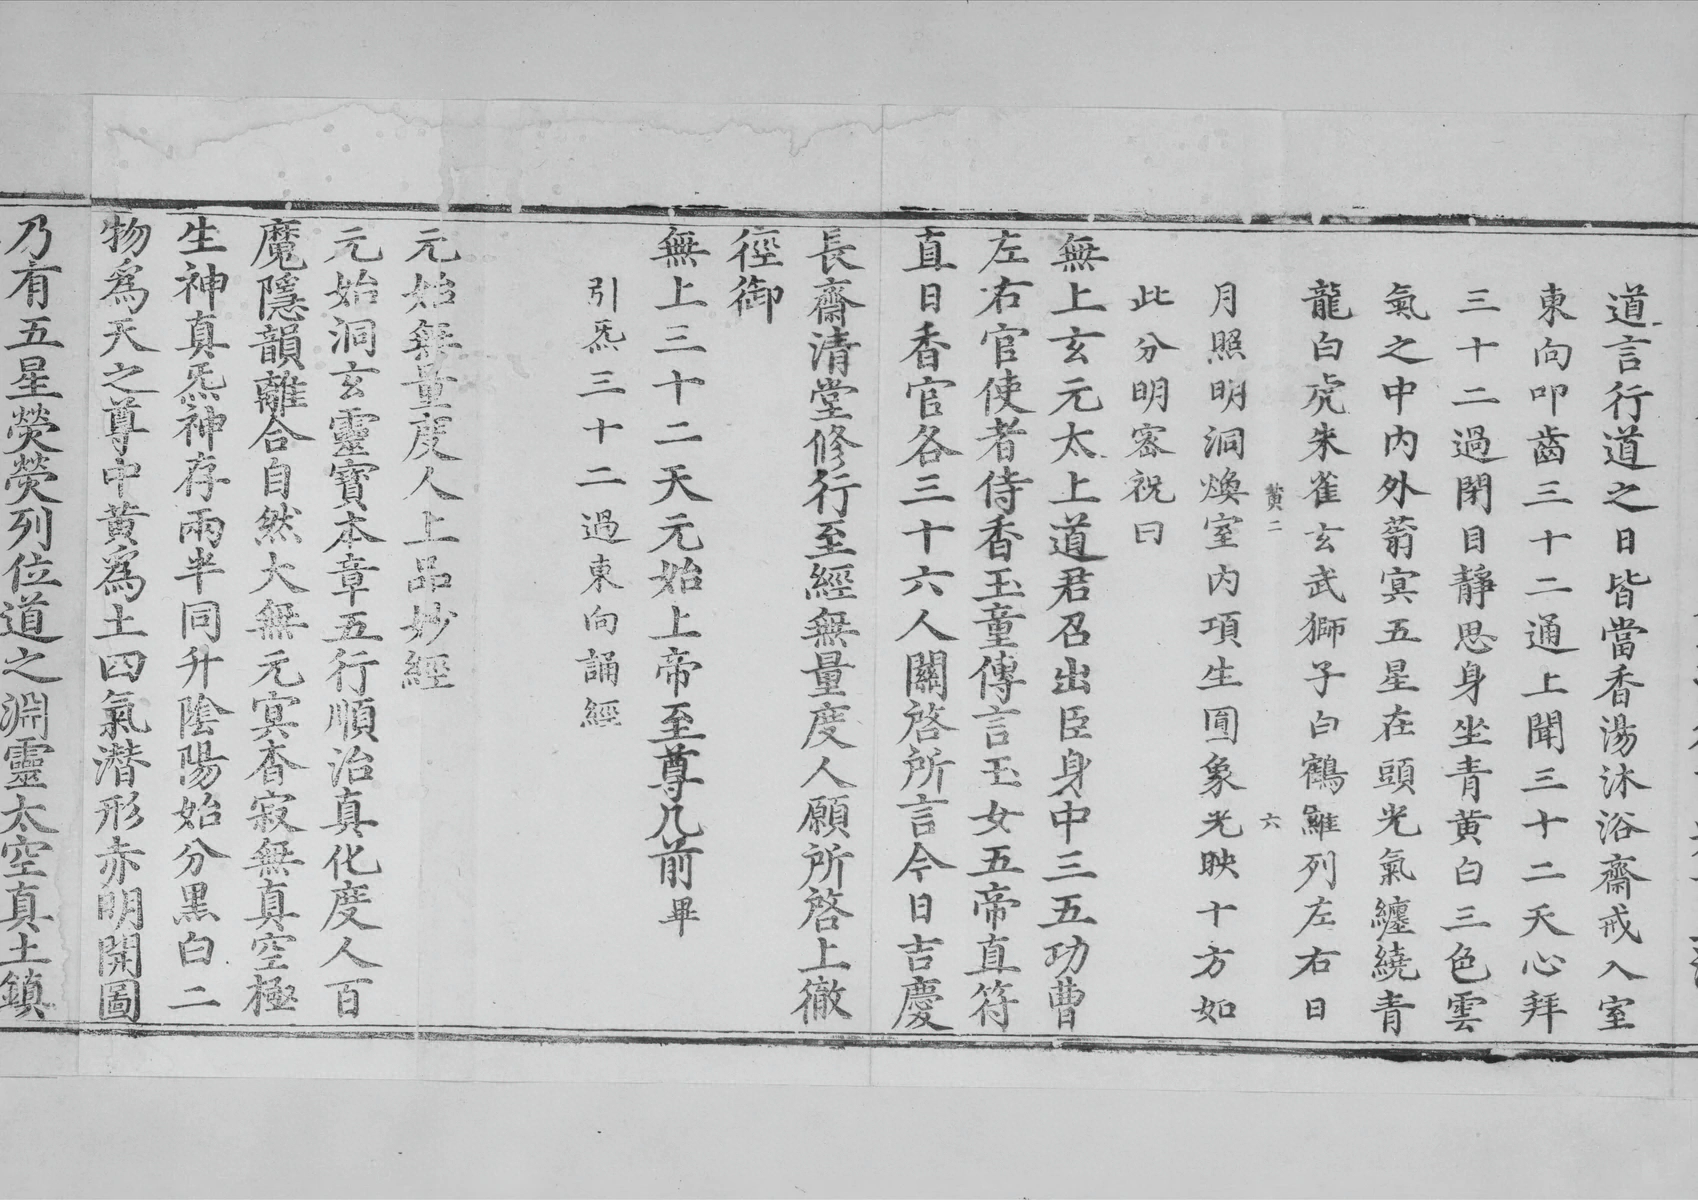 道言行道之日皆當香湯沐浴齋戒入室
東向叩齒三十二通上聞三十二天心拜
三十二過閉目靜思身坐青黃白三色雲
氣之中內外蓊冥五星在頭光氣纏繞青
龍白虎朱雀玄武獅子白鶴羅列左右日
黃二 六
月照明洞煥室內項生圓象光映十方如
此分明密祝曰
無上玄元太上道君召出臣身中三五功曹
左右官使者侍香玉童傳言玉女五帝直符
直日香官各三十六人關啓所言今日吉慶
長齋清堂修行至經無量度人願所啓上徹
徑御
無上三十二天元始上帝至尊几前畢
引炁三十二過東向誦經
元始無量度人上品妙經
元始洞玄靈寶本章五行順治真化度人百
魔隱韻離合自然大無元冥杳寂無真空極
生神真炁神存兩半同升陰陽始分黑白二
物爲天之尊中黃爲土四氣潛形赤明開圖
乃有五星熒熒列位道之淵靈太空真土鎮